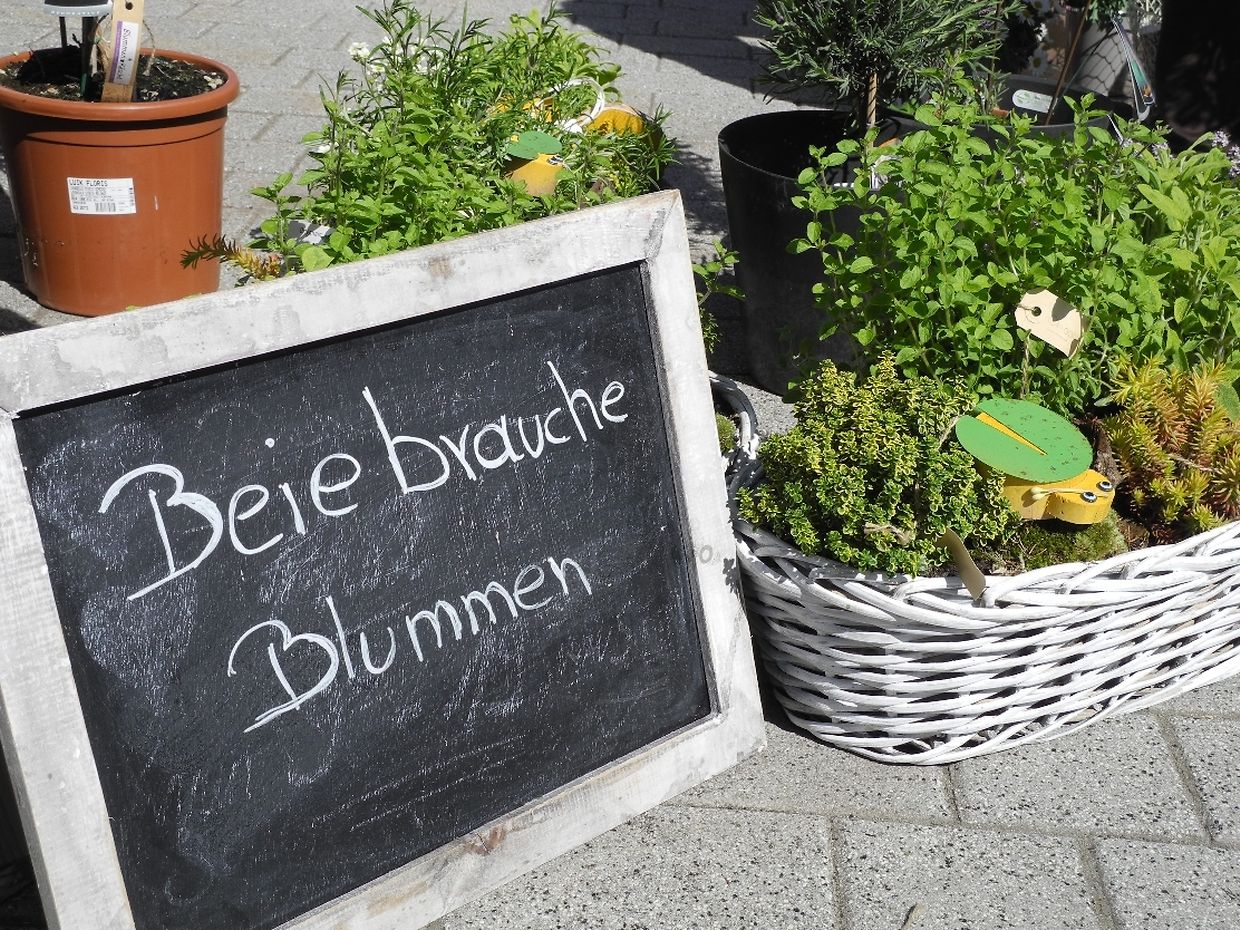 LUIK FLORIS
Beie brauche
Blummen